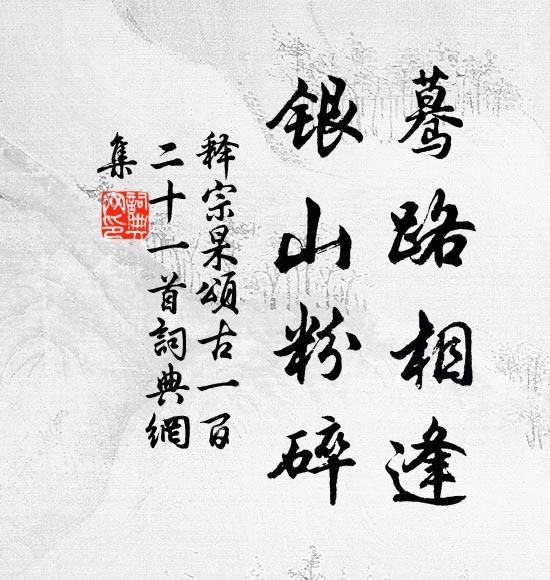 驀路相逢
銀山粉碎
释宗杲頌古一百
二十一首詞典網
集
詞典
网印